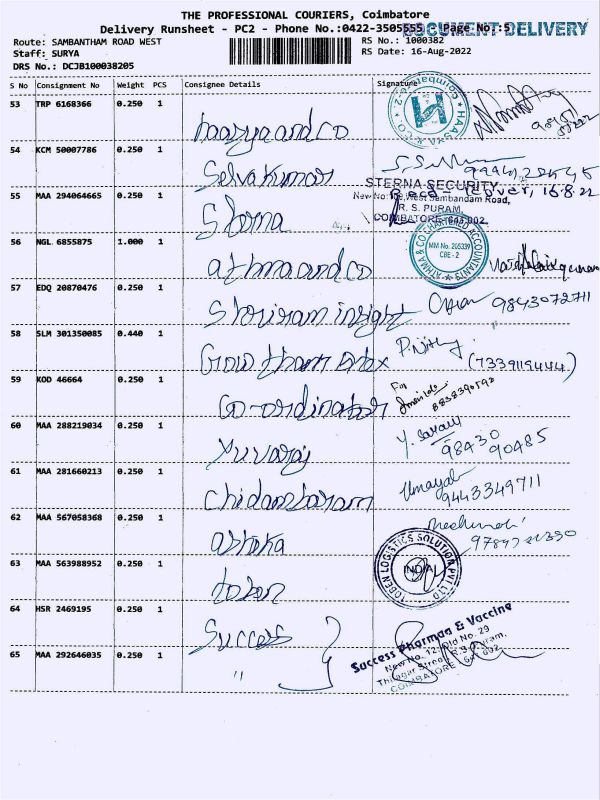 THE PROFESSIONAL COURIERS, Coimbatore
Delivery Runsheet - PC2 - Phone No.:0422-3505555 Page No:5
DOCUMENT DELIVERY
Route: SAMBANTHAM ROAD WEST
RS No.: 1000382
Staff: SURYA
RS Date: 16-Aug-2022
DRS No.: DCJB100038205
S No Consignment No Weight PCS Consignee Details Signature
53 TRP 6168366 0.250 1
haasya and co
HAASYA & CO. coimbatore-2
54 KCM 50007786 0.250 1
Selva kumar
55 MAA 294064665 0.250 1
Sterna
STERNA SECURITY
West Sambandam Road,
R. S. PURAM,
COIMBATORE-641 002.
16.8.22
56 NGL 6855875 1.000 1
athma and co
ATHMA & CO CHARTERED ACCOUNTANTS
MM No. 205339
CBE - 2
57 EDQ 20870476 0.250 1
Shriram insight
9843072711
58 SLM 301350085 0.440 1
P. Nithy
(7339119444)
59 KOD 46664 0.250 1
Co-ordinator
For
8838390592
60 MAA 288219034 0.250 1
Yuvaraj
98430
90485
61 MAA 281660213 0.250 1
Chidambaram
Umayal
9443349711
62 MAA 567058368 0.250 1
ashoka
63 MAA 563988952 0.250 1
toben
TOBEN LOGISTICS SOLUTION PVT LTD
INDIA
64 HSR 2469195 0.250 1
Success
Success Pharmaa & Vaccine
New No. 12, Old No. 29
Street, R.S. Puram,
COIMBATORE - 641 002.
65 MAA 292646035 0.250 1
"